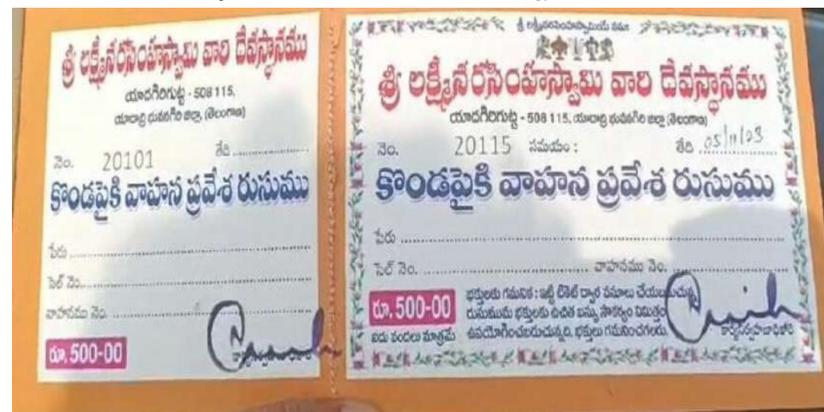 శ్రీ లక్ష్మీనరసింహస్వామి వారి దేవస్థానము
యాదగిరిగుట్ట - 508 115,
యాదాద్రి భువనగిరి జిల్లా, (తెలంగాణ)
నెం. 20101 తేది
కొండపైకి వాహన ప్రవేశ రుసుము
పేరు
సెల్ నెం.
వాహనము నెం.
రూ. 500-00
శ్రీ లక్ష్మీనరసింహస్వామియే నమః
శ్రీ లక్ష్మీనరసింహస్వామి వారి దేవస్థానము
యాదగిరిగుట్ట - 508 115, యాదాద్రి భువనగిరి జిల్లా, (తెలంగాణ)
నెం. 20115 సమయం : తేది 05/11/23
కొండపైకి వాహన ప్రవేశ రుసుము
పేరు
సెల్ నెం. వాహనము నెం.
రూ. 500-00
భక్తులకు గమనిక : ఇట్టి టికెట్ ద్వారా వసూలు చేయబడుచున్న
రుసుముమే భక్తులకు ఉచిత బస్సు సౌకర్యం నిమిత్తం
ఐదు వందలు మాత్రమే ఉపయోగించబడుచున్నది. భక్తులు గమనించగలరు.
కార్యనిర్వహణాధికారి